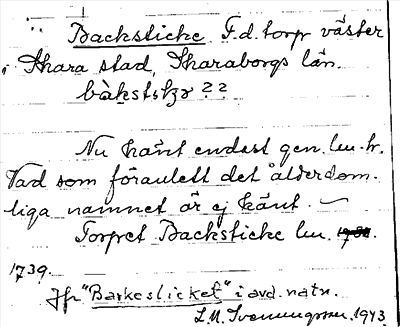 Backsticke F.d. torp väster
i Skara stad, Skaraborgs län.
bàkstikə ??
Nu känt endast gen. lm-hr.
Vad som föranlett det ålderdom-
liga namnet är ej känt.
Torpet Backsticke lm.
1739.
Jfr "Barkeslicket" i avd. natn.
1943.